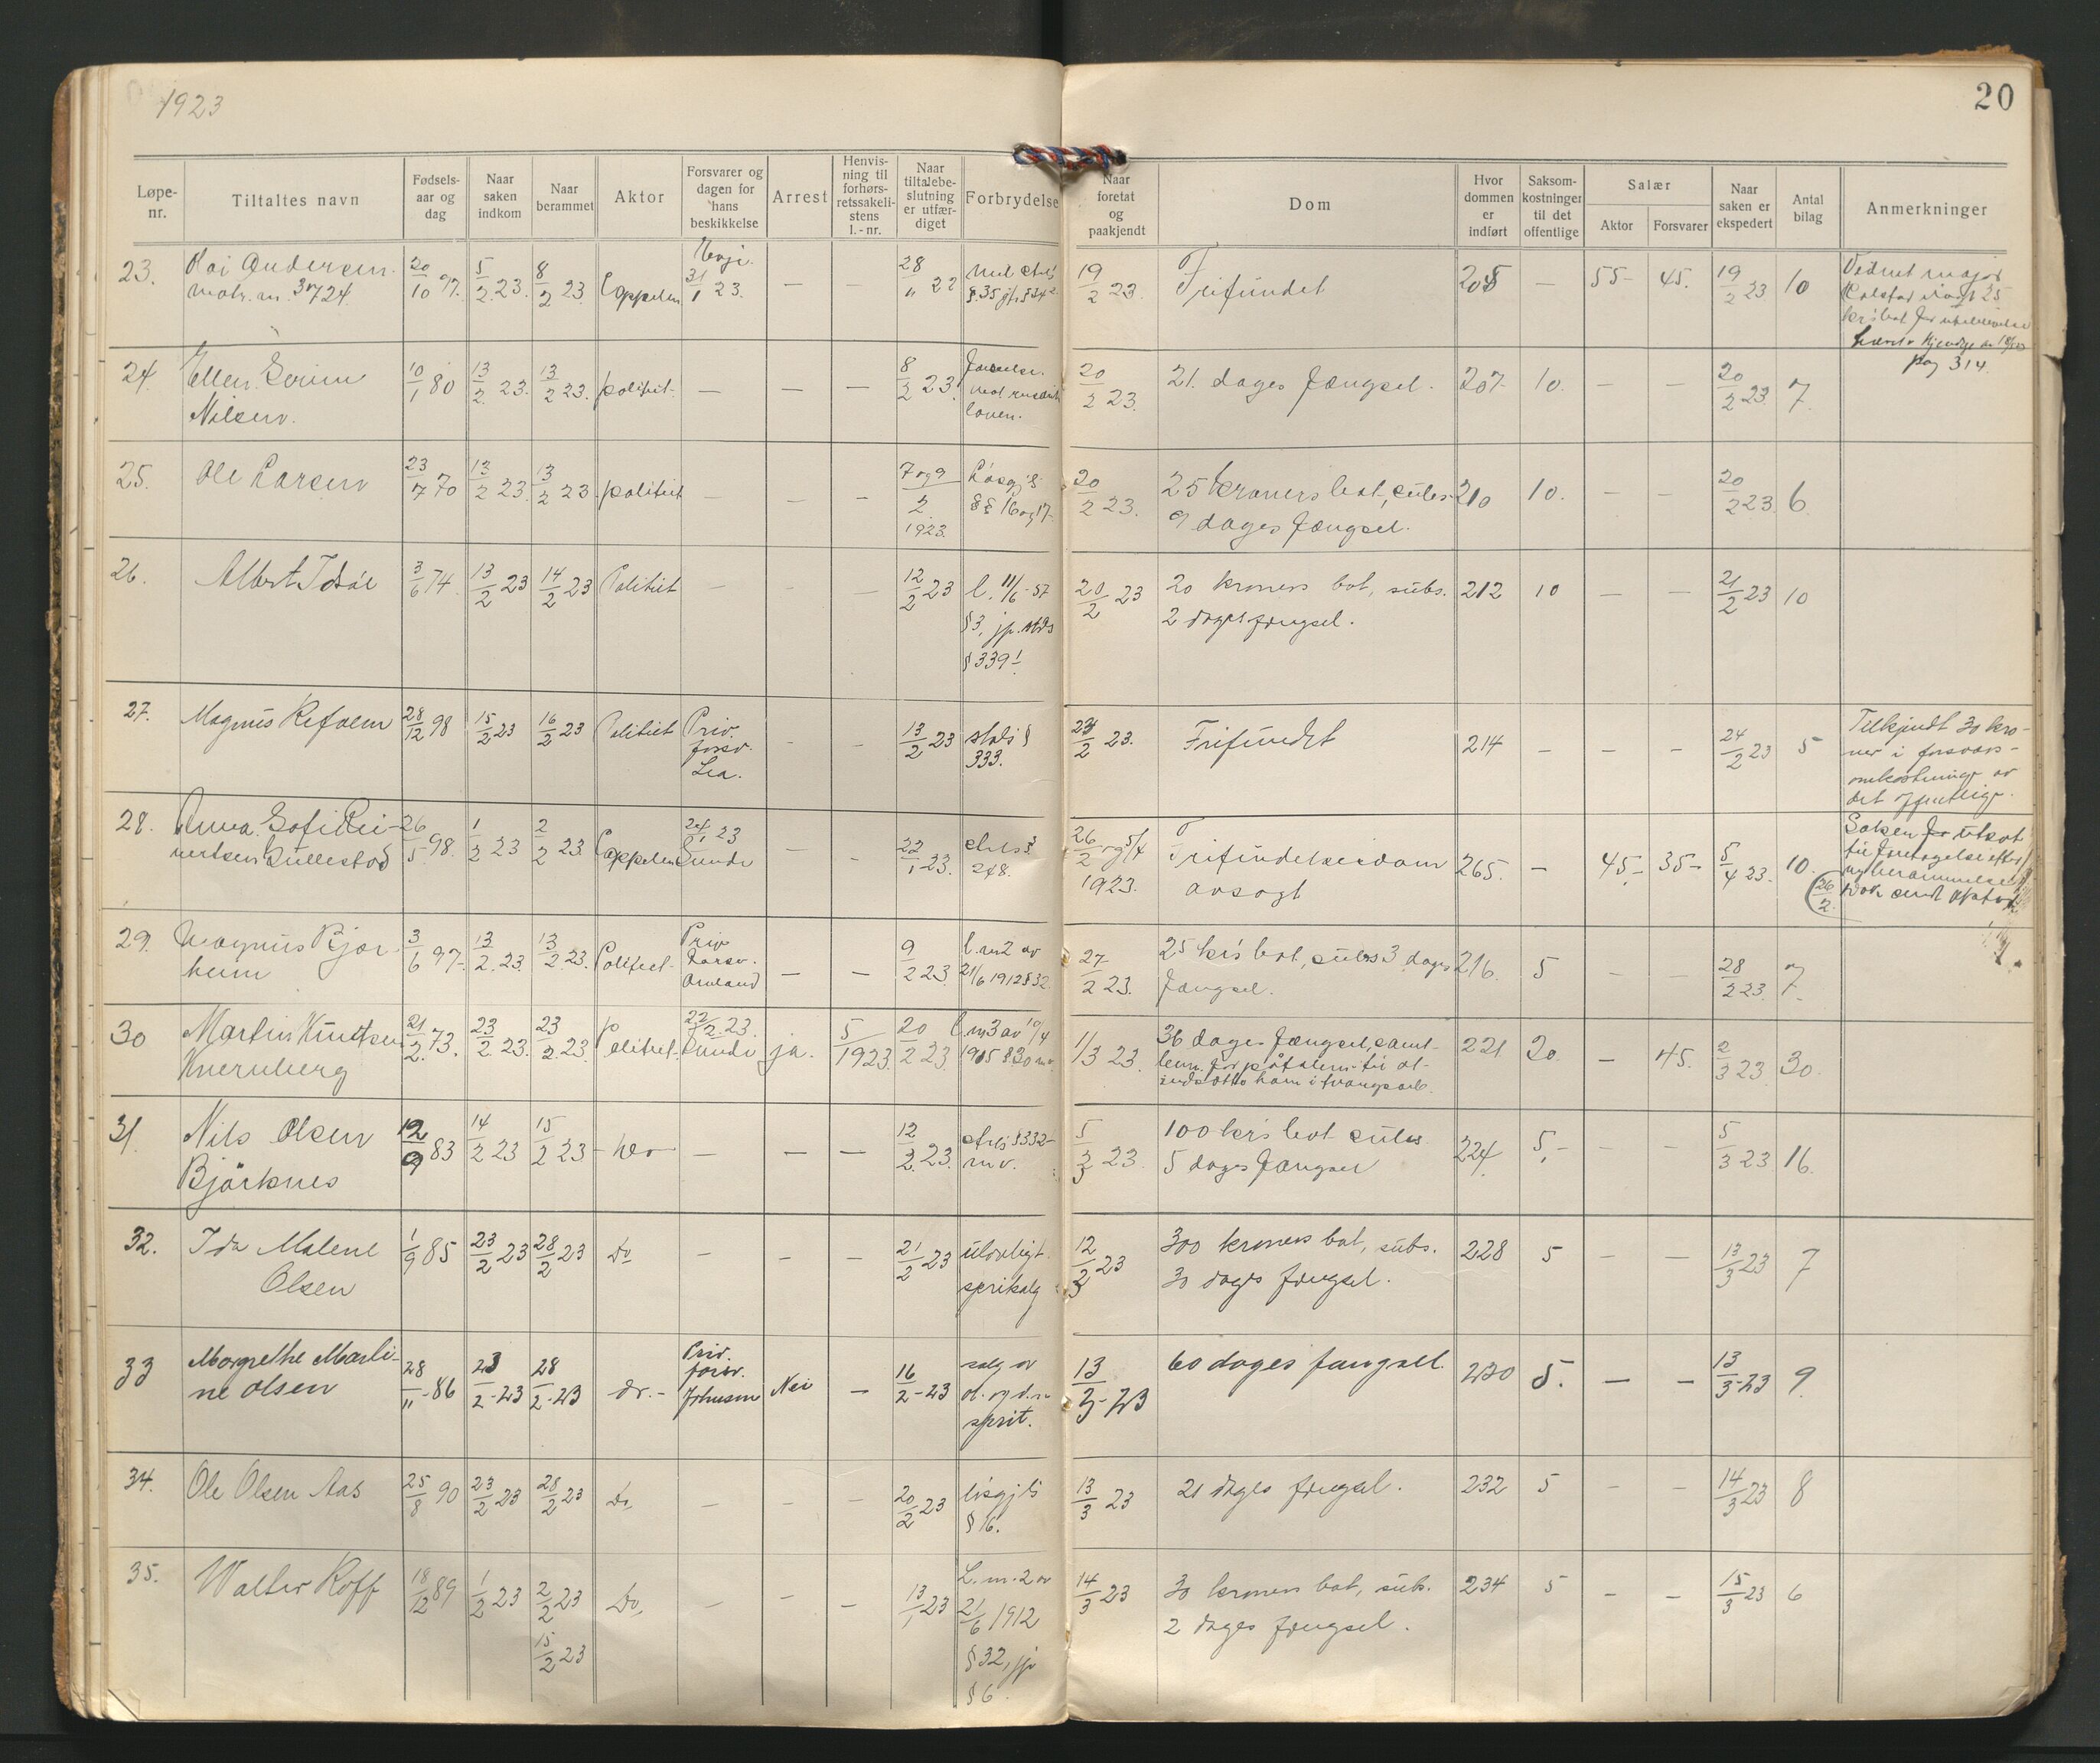 1923
20
Løpe-nr.
Tiltaltes navn
Fødsels-aar og dag
Naar saken indkom
Naar berammet
Aktor
Forsvarer og dagen for hans beskikkelse
Arrest
Henvis-ning til forhørs-retssakeli-stens l.-nr.
Naar tiltalebe-slutning er utfær-diget
Forbrydelse
Naar foretat og paakjendt
Dom
Hvor dommen er indført
Saksom-kostninger til det offentlige
Salær
Aktor
Forsvarer
Naar saken er ekspedert
Antal bilag
Anmerkninger
23. Kai Andersen 20/10 97. 5/2 23. 8/2 23. Cappelen 31/1 23. — — 28/11 22 19/2 23. Frifundet 205 — 55- 45. 19/2 23 10
pag 314.
24. Ellen 10/1 80 13/2 23. 13/2 23. politiet. — — — 8/2 23. 20/2 23. 21. dages fængsel. 207- 10. — — 20/2 23. 7.
Nilsen.
loven.
25. Ole Larsen 23/7 70 13/2 23. 13/2 23. politiet — — — 7 og 9/2 1923. Løsgjl. 20/2 23. 25 kroners bot, subs. 210 10. — — 20/2 23. 6.
§§ 16 og 17.
9 dages fængsel.
26. Albert Idsöe 3/6 74. 13/2 23 14/2 23 Politiet — — — 12/2 23 l. 11/6-57 20/2 23 20 kroners bot, subs. 212 10 — — 21/2 23 10
§ 3, jp. strls
§ 339 1
2 dages fængsel.
27. Magnus Refvem 28/12 98 15/2 23 16/2 23 Politiet Priv. forsv. Lea. — — 13/2 23 strls § 333. 23/2 23. Frifundet 214 — — — 24/2 23 5
Tilkjendt 30 kro-
ner i forsvars-
omkostninger av
det offentlige.
28. Anna Sofi 26/5 98. 1/2 23 2/2 23. Cappelen 24/1 23 Sunde — — 22/1 23. 26/2 og 5/4 1923. Frifindelsesdom 265. — 45.- 35- 5/4 23. 10.
avsagt
26/2
29. Magnus Bjor- 3/6 97- 13/2 23. 13/2 23. Politiet. Priv forsv. — — 9/2 23. l. nr 2 av 27/2 23. 25 kr's bot, subs 3 dages 216. 5 — — 28/2 23. 7.
heim
21/6 1912 § 32.
fængsel.
30 Martin Knutsen 21/2 73. 23/2 23. 23/2 23. Politiet. 22/2 23. Sunde ja. 5/1923. 20/2 23. l. nr 3 av 1/3 23. 36 dages fængsel, samt- 221 20. — 45. 2/3 23 30.
Kvernberg
31. Nils Olsen 12/9 83 14/2 23 15/2 23 Do — — — 12/2 23. strls § 332 5/3 23. 100 kr's bot subs. 224. 5.- — — 5/3 23 16.
Björknes
m v.
5 dages fængsel
32. Ida Malene 1/9 85 23/2 23 28/2 23 Do — — — 21/2 23 ulovligt 12/3 23 300 kroners bot, subs. 228 5 — — 13/3 23 7
Olsen
spritsalg
30 dages fængsel.
33 Margrethe Marti- 28/11-86 23/2-23 28/2-23 do.- Priv. forsv. Johnsen Nei — 16/2-23 salg av 13/3-23 60 dages fængsel. 230 5. — — 13/3-23 9.
ne Olsen
sprit.
34. Ole Olsen Aas 25/8 90 23/2 23 28/2 23 Do — — — 20/2 23 løsgjls 13/3 23 21 dages fængsel. 232 5 — — 14/3 23 8
§ 16.
35. Walter Roff 18/12 89 1/2 23 2/2 23 Do — — — 13/1 23 L. nr. 2 av 14/3 23 30 kroners bot, subs. 234 5 — — 15/3 23 6
15/2 23
21/6 1912
2 dages fængsel.
§ 32, jp
§ 6.